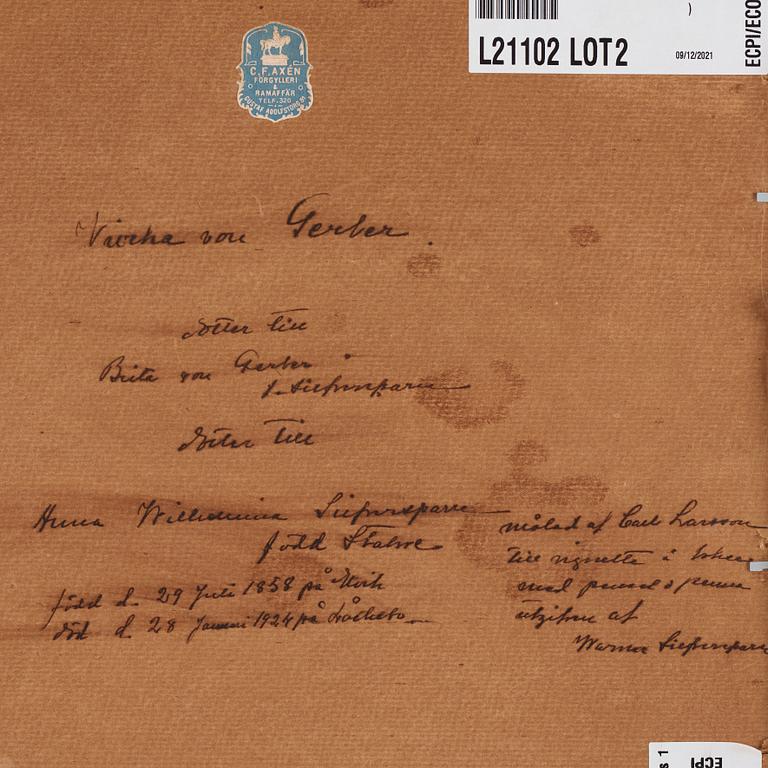 L21102 LOT2
09/12/2021
ECPI/ECO
C.F.AXÉN
FÖRGYLLERI
&
RAMAFFÄR
TELF. 320
GUSTAF ADOLFSTORG
von Gerber.
dotter till
Brita von Gerber
f. Liefversparre
dotter till
Anna Wilhelmina Liefversparre
född
född d. 29 Juli 1858 på
död d. 28 Januari 1924 på
målad af Carl Larsson
till vignette i
med pensel o penna
af
Werner Liefversparre
s 1
ECPI